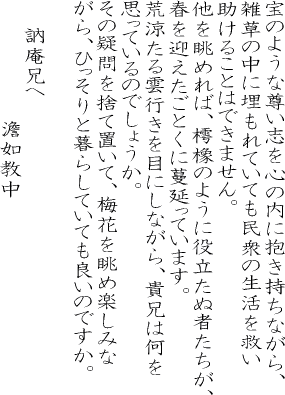 宝のような尊い志を心の内に抱き持ちながら、
雑草の中に埋もれていても民衆の生活を救い
助けることはできません。
他を眺めれば、樗橡のように役立たぬ者たちが、
春を迎えたごとくに蔓延っています。
荒涼たる雲行きを目にしながら、貴兄は何を
思っているのでしょうか。
その疑問を捨て置いて、梅花を眺め楽しみな
がら、ひっそりと暮らしていても良いのですか。
訥庵兄へ
澹如教中